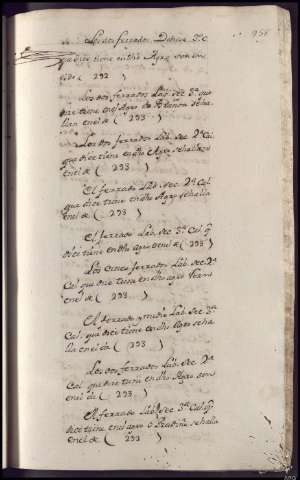 Los dos ferrados Labrª S.C.
que dice tiene en dho Agro son en
el de ( 292 )
Los dos ferrados Lab. Sec. 2ª que
dice tiene en el Agro de se ha
llan en el de ( 293 )
Los dos ferrados Lab. Sec. 2ª Cal.
que dice tiene en dho Agro se hallan
en el de ( 293 )
El ferrado Lab. Sec. 2ª Cal.
que dice tiene en dho Agro se halla
en el de ( 293 )
El ferrado Lab. Sec. 3ª Cal. q.
dice tiene en dho agro en el de ( 293 )
Los cinco ferrados Lab. Sec. 2ª
Cal. que dice tiene en dho agro
en el de ( 293 )
El ferrado y medio Lab. Sec. 2ª
Cal. que dice tiene en dho Agro se ha
lla en el de ( 293 )
Los dos ferrados Lab. Sec. 2ª
Cal. que dice tiene en dho Agro son
en el de ( 293 )
El ferrado Lab. Sec. 3ª Cal. q.
dice tiene en el agro se halla
en el de ( 293 )